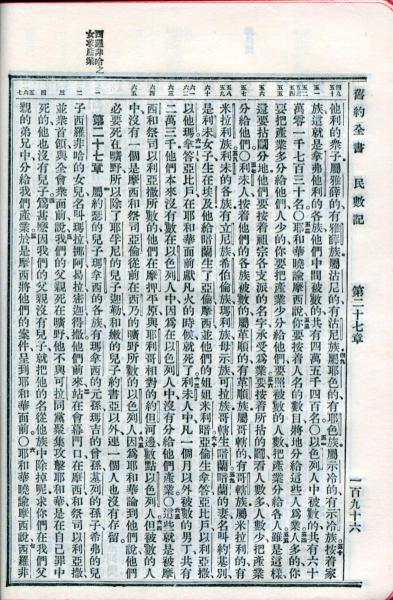 舊約全書 民數記 第二十七章 一百九十六
他利的衆子屬雅薛的有雅薛族屬沽尼的有沽尼族屬耶色的有耶色族屬示冷的有示冷族按着家
族這就是拿弗他利的各族他們中間被數的共有四萬五千四百名○以色列人中被數的共有六十
萬零一千七百三十名○耶和華曉諭摩西說你要按着人名的數目將地分給這些人爲業人多的你
要把產業多分給他們人少的你要把產業少分給他們要照被數的人數把產業分給各人雖是這樣
還要拈鬮分地他們要按着祖宗各支派的名字承受爲業要按着所拈的鬮看人數多人數少把產業
分給他們○利未人按着他們的各族被數的屬革順的有革順族屬哥轄的有哥轄族屬米拉利的有
米拉利族利未的各族有立尼族希伯倫族瑪利族母示族可拉族哥轄生暗蘭暗蘭的妻名叫約基別
是利未女子生在埃及他給暗蘭生了亞倫摩西並他們的姐姐米利暗亞倫生拿答亞比戶以利亞撒
以他瑪拿答亞比戶在耶和華面前獻凡火的時候就死了利未人中凡一個月以外被數的男丁共有
二萬三千他們本來沒有數在以色列人中因爲在以色列人中沒有分給他們產業○這些就是被摩
西和祭司以利亞撒所數的他們在摩押平原與耶利哥相對的約但河邊數點以色列人但被數的人
中沒有一個是摩西和祭司亞倫從前在西乃的曠野所數的以色列人因爲耶和華論到他們說他們
必要死在曠野所以除了耶孚尼的兒子迦勒和嫩的兒子約書亞以外連一個人也沒有存留
第二十七章 屬約瑟的兒子瑪拿西的各族有瑪拿西的元孫瑪吉的曾孫基列的孫子希弗的兒
子西羅非哈的女兒名叫瑪拉挪阿曷拉密迦得撒他們前來站在會幕門口在摩西和祭司以利亞撒
並衆首領與全會衆面前說我們的父親死在曠野他不與可拉同黨聚集攻擊耶和華是在自己罪中
死的他也沒有兒子爲甚麼因我們的父親沒有兒子就把他的名從他族中除掉呢求你們在我們父
親的弟兄中分給我們產業於是摩西將他們的案件呈到耶和華面前○耶和華曉諭摩西說西羅非
西羅非哈之
女求產業